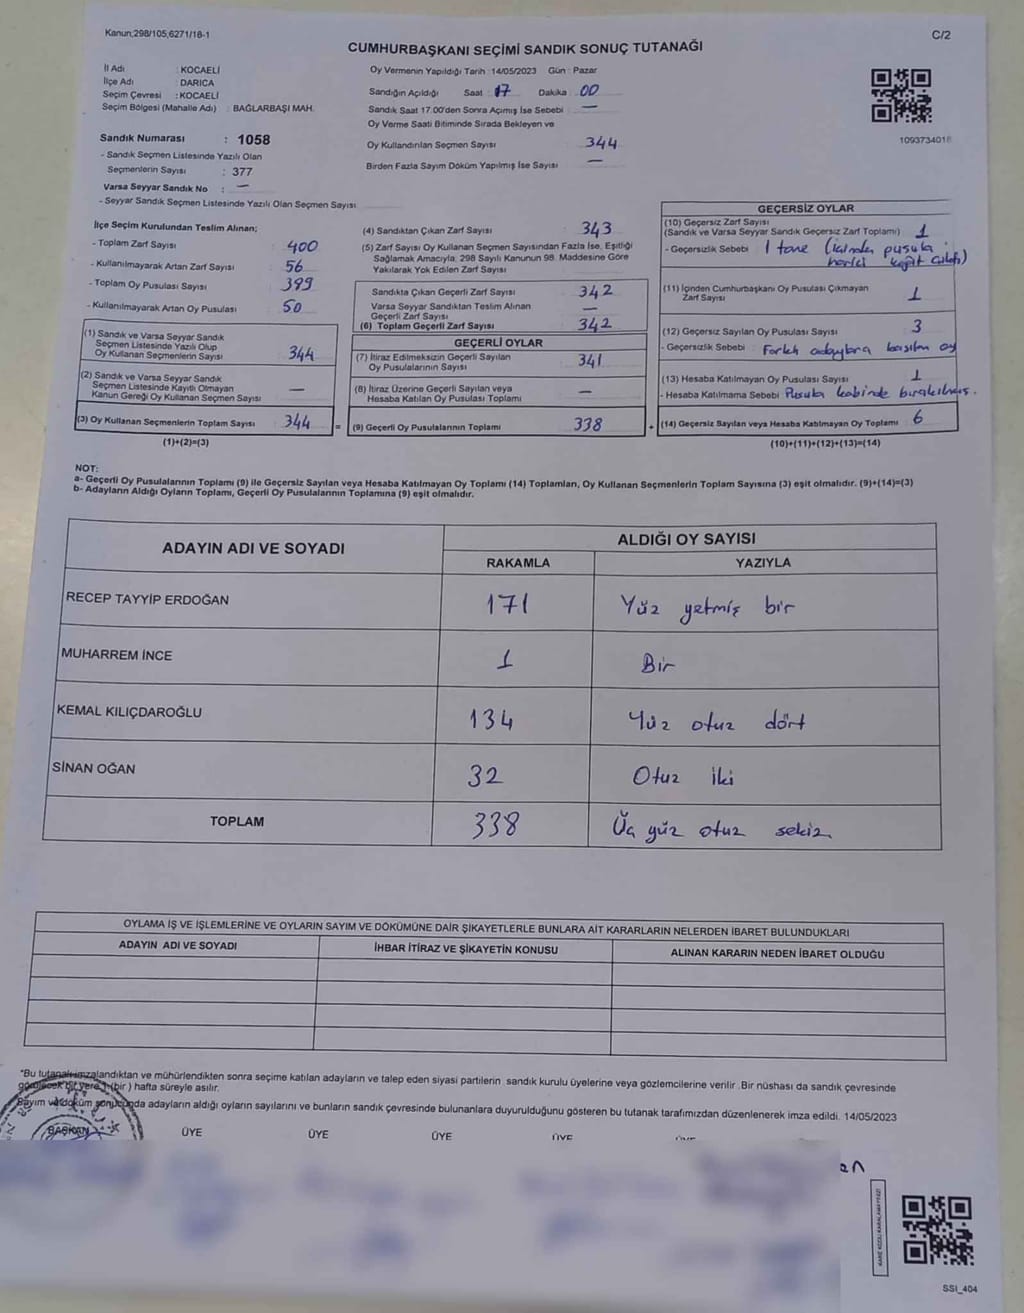 Kanun,298/105,6271/18-1
C/2
CUMHURBAŞKANI SEÇİMİ SANDIK SONUÇ TUTANAĞI
İl Adı : KOCAELİ
İlçe Adı : DARICA
Seçim Çevresi : KOCAELİ
Seçim Bölgesi (Mahalle Adı) : BAĞLARBAŞI MAH.
Sandık Numarası : 1058
- Sandık Seçmen Listesinde Yazılı Olan
Seçmenlerin Sayısı : 377
Varsa Seyyar Sandık No : —
- Seyyar Sandık Seçmen Listesinde Yazılı Olan Seçmen Sayısı
Oy Vermenin Yapıldığı Tarih : 14/05/2023 Gün : Pazar
Sandığın Açıldığı Saat : 17 Dakika : 00
Sandık Saat 17.00'den Sonra Açımış İse Sebebi —
Oy Verme Saati Bitiminde Sırada Bekleyen ve
Oy Kullandırılan Seçmen Sayısı 344
Birden Fazla Sayım Döküm Yapılmış İse Sayısı —
1093734018
İlçe Seçim Kurulundan Teslim Alınan;
- Toplam Zarf Sayısı 400
- Kullanılmayarak Artan Zarf Sayısı 56
- Toplam Oy Pusulası Sayısı 399
- Kullanılmayarak Artan Oy Pusulası 50
(1) Sandık ve Varsa Seyyar Sandık
Seçmen Listesinde Yazılı Olup
Oy Kullanan Seçmenlerin Sayısı 344
(2) Sandık ve Varsa Seyyar Sandık
Seçmen Listesinde Kayıtlı Olmayan
Kanun Gereği Oy Kullanan Seçmen Sayısı —
(3) Oy Kullanan Seçmenlerin Toplam Sayısı 344 =
(1)+(2)=(3)
(4) Sandıktan Çıkan Zarf Sayısı 343
(5) Zarf Sayısı Oy Kullanan Seçmen Sayısından Fazla İse, Eşitliği
Sağlamak Amacıyla, 298 Sayılı Kanunun 98. Maddesine Göre
Yakılarak Yok Edilen Zarf Sayısı
Sandıkta Çıkan Geçerli Zarf Sayısı 342
Varsa Seyyar Sandıktan Teslim Alınan
Geçerli Zarf Sayısı —
(6) Toplam Geçerli Zarf Sayısı 342
GEÇERLİ OYLAR
(7) İtiraz Edilmeksizin Geçerli Sayılan
Oy Pusulalarının Sayısı 341
(8) İtiraz Üzerine Geçerli Sayılan veya
Hesaba Katılan Oy Pusulası Toplamı —
(9) Geçerli Oy Pusulalarının Toplamı 338 +
GEÇERSİZ OYLAR
(10) Geçersiz Zarf Sayısı
(Sandık ve Varsa Seyyar Sandık Geçersiz Zarf Toplamı) 1
- Geçersizlik Sebebi 1 tane (içinden pusula
harici kağıt çıktı)
(11) İçinden Cumhurbaşkanı Oy Pusulası Çıkmayan
Zarf Sayısı 1
(12) Geçersiz Sayılan Oy Pusulası Sayısı 3
- Geçersizlik Sebebi Farklı adaylara basılan oy
(13) Hesaba Katılmayan Oy Pusulası Sayısı 1
- Hesaba Katılmama Sebebi Pusula kabinde bırakılmış.
(14) Geçersiz Sayılan veya Hesaba Katılmayan Oy Toplamı 6
(10)+(11)+(12)+(13)=(14)
NOT:
a- Geçerli Oy Pusulalarının Toplamı (9) ile Geçersiz Sayılan veya Hesaba Katılmayan Oy Toplamı (14) Toplamları, Oy Kullanan Seçmenlerin Toplam Sayısına (3) eşit olmalıdır. (9)+(14)=(3)
b- Adayların Aldığı Oyların Toplamı, Geçerli Oy Pusulalarının Toplamına (9) eşit olmalıdır.
ADAYIN ADI VE SOYADI
ALDIĞI OY SAYISI
RAKAMLA YAZIYLA
RECEP TAYYİP ERDOĞAN 171 Yüz yetmiş bir
MUHARREM İNCE 1 Bir
KEMAL KILIÇDAROĞLU 134 Yüz otuz dört
SİNAN OĞAN 32 Otuz iki
TOPLAM 338 Üç yüz otuz sekiz
OYLAMA İŞ VE İŞLEMLERİNE VE OYLARIN SAYIM VE DÖKÜMÜNE DAİR ŞİKAYETLERLE BUNLARA AİT KARARLARIN NELERDEN İBARET BULUNDUKLARI
ADAYIN ADI VE SOYADI İHBAR İTİRAZ VE ŞİKAYETİN KONUSU ALINAN KARARIN NEDEN İBARET OLDUĞU
*Bu tutanak imzalandıktan ve mühürlendikten sonra seçime katılan adayların ve talep eden siyasi partilerin sandık kurulu üyelerine veya gözlemcilerine verilir .Bir nüshası da sandık çevresinde
görülecek bir yere 1 (bir ) hafta süreyle asılır.
Sayım ve döküm sonucunda adayların aldığı oyların sayılarını ve bunların sandık çevresinde bulunanlara duyurulduğunu gösteren bu tutanak tarafımızdan düzenlenerek imza edildi. 14/05/2023
BAŞKAN ÜYE ÜYE ÜYE ÜYE ÜYE
KARE KODU KARALAMAYINIZ!
SSI_404